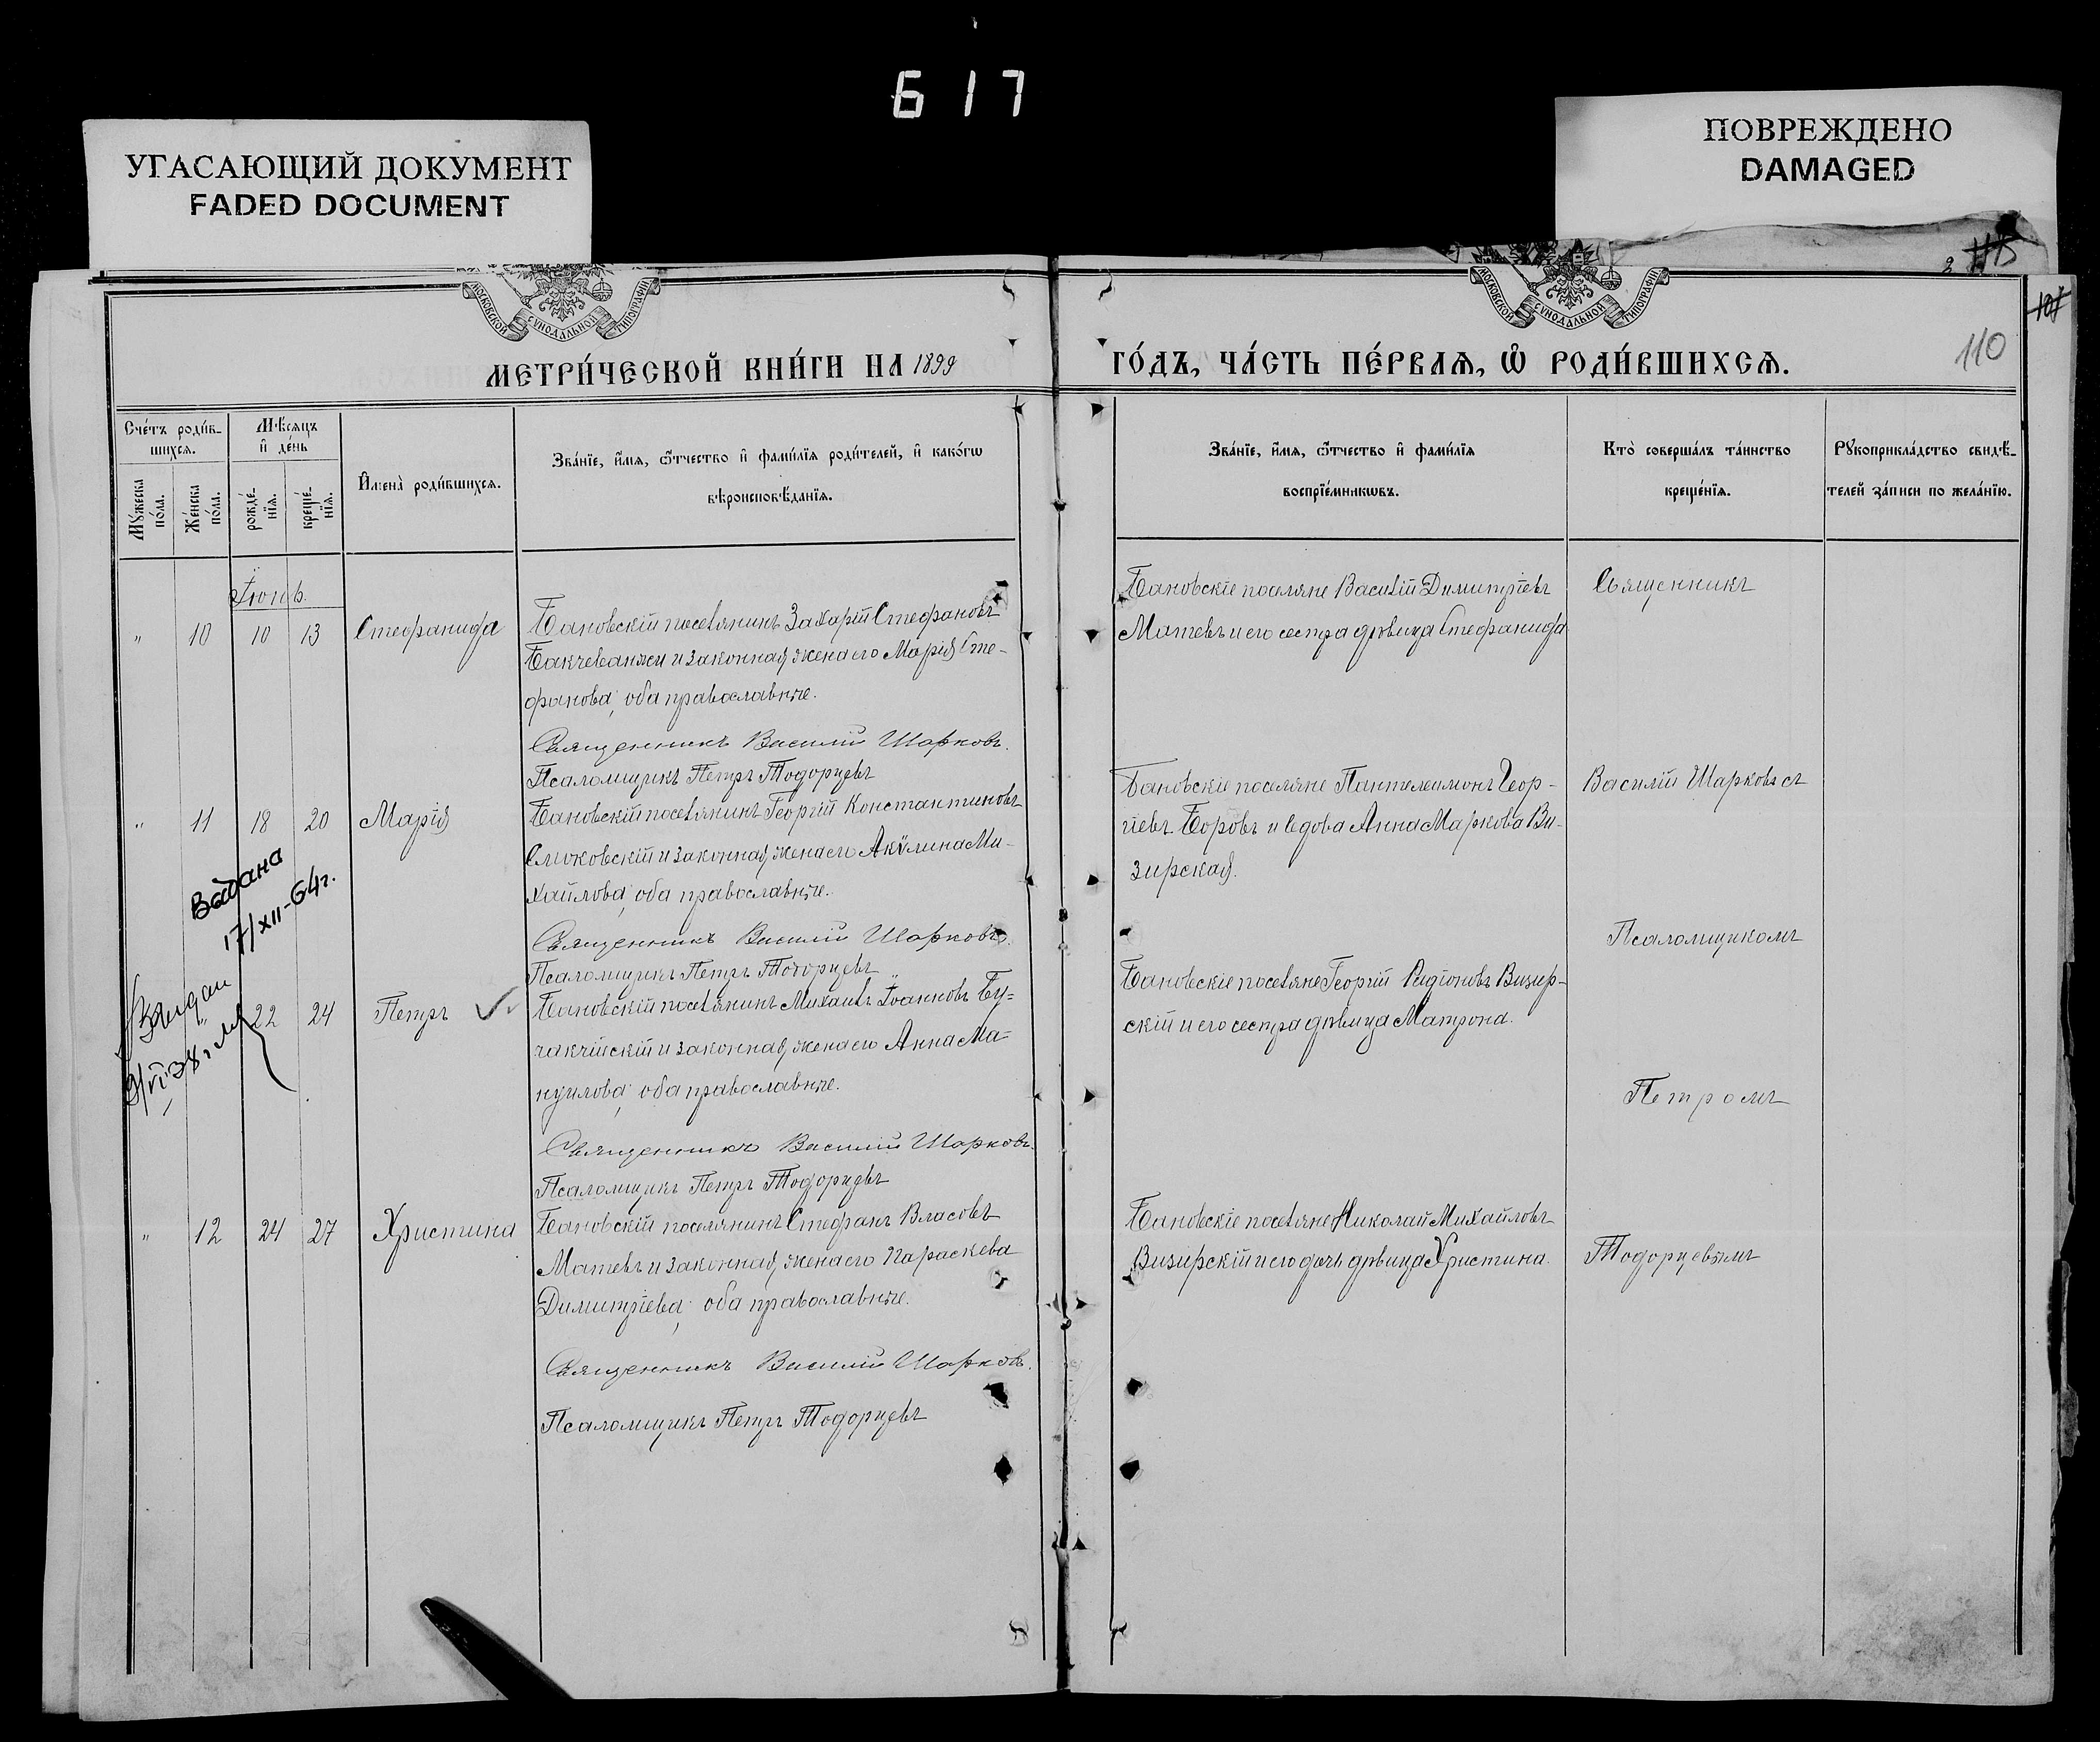 617
УГАСАЮЩИЙ ДОКУМЕНТ
FADED DOCUMENT
ПОВРЕЖДЕНО
DAMAGED
115
107
110
МОСКОВСКОЙ СУНОДАЛЬНОЙ ТИПОГРАФІИ
МОСКОВСКОЙ СУНОДАЛЬНОЙ ТИПОГРАФІИ
МЕТРИ́ЧЕСКОЙ КНИ́ГИ НА 1899
ГО́ДЪ, ЧА́СТЬ ПЕ́РВАѦ, Ѽ РОДИ́ВШИХСѦ.
Сче́тъ роди́в-
шихсѧ.
Мѣ́сѧцъ
и҆ де́нь
Мꙋ́жеска
по́ла.
Же́нска
по́ла.
рожде́-
нїѧ.
креще́-
нїѧ.
И҆мена̀ роди́вшихсѧ.
Зва́нїе, и҆́мѧ, ѻ҆́тчество и҆ фами́лїѧ роди́телей, и҆ како́гѡ
вѣроисповѣ́данїѧ.
Зва́нїе, и҆́мѧ, ѻ҆́тчество и҆ фами́лїѧ
воспрїе́мникѡвъ.
Кто̀ соверша́лъ та́инство
креще́нїѧ.
Рꙋкоприкла́дство свидѣ́-
телей за́писи по жела́нїю.
Іюнь.
" 10 10 13 Стефанида
Бановскій поселянинъ Захарій Стефановъ
Бакчеванжи и законная жена его Марія Сте-
фанова, оба православные.
Священникъ Василій Шарковъ.
Псаломщикъ Петръ Тодорцевъ
Бановскіе поселяне Василій Димитріевъ
Матевъ и его сестра дѣвица Стефанида
Священникъ
" 11 18 20 Марія
Бановскій поселянинъ Георгій Константиновъ
Слиоковскій и законная жена его Акулина Ми-
хайлова, оба православные.
Священникъ Василій Шарковъ.
Псаломщикъ Петръ Тодорцевъ
Бановскіе поселяне Пантелеимонъ Геор-
гіевъ Боровъ и вдова Анна Маркова Ви-
зирская.
Василій Шарковъ съ
Выдана
17/XII-64г.
Псаломщикомъ
22 24 Петръ
Бановскій поселянинъ Михаилъ Іоанновъ Бу-
чакчійскій и законная жена его Анна Ма-
нуилова, оба православные.
Священникъ Василій Шарковъ.
Псаломщикъ Петръ Тодорцевъ
Бановскіе поселяне Георгій Радіоновъ Визир-
скій и его сестра дѣвица Матрона.
Петромъ
" 12 24 27 Христина
Бановскій поселянинъ Стефанъ Власовъ
Матевъ и законная жена его Параскева
Димитріева, оба православные.
Священникъ Василій Шарковъ.
Псаломщикъ Петръ Тодорцевъ
Бановскіе поселяне Николай Михайловъ
Визирскій и его дочь дѣвица Христина.
Тодорцевымъ